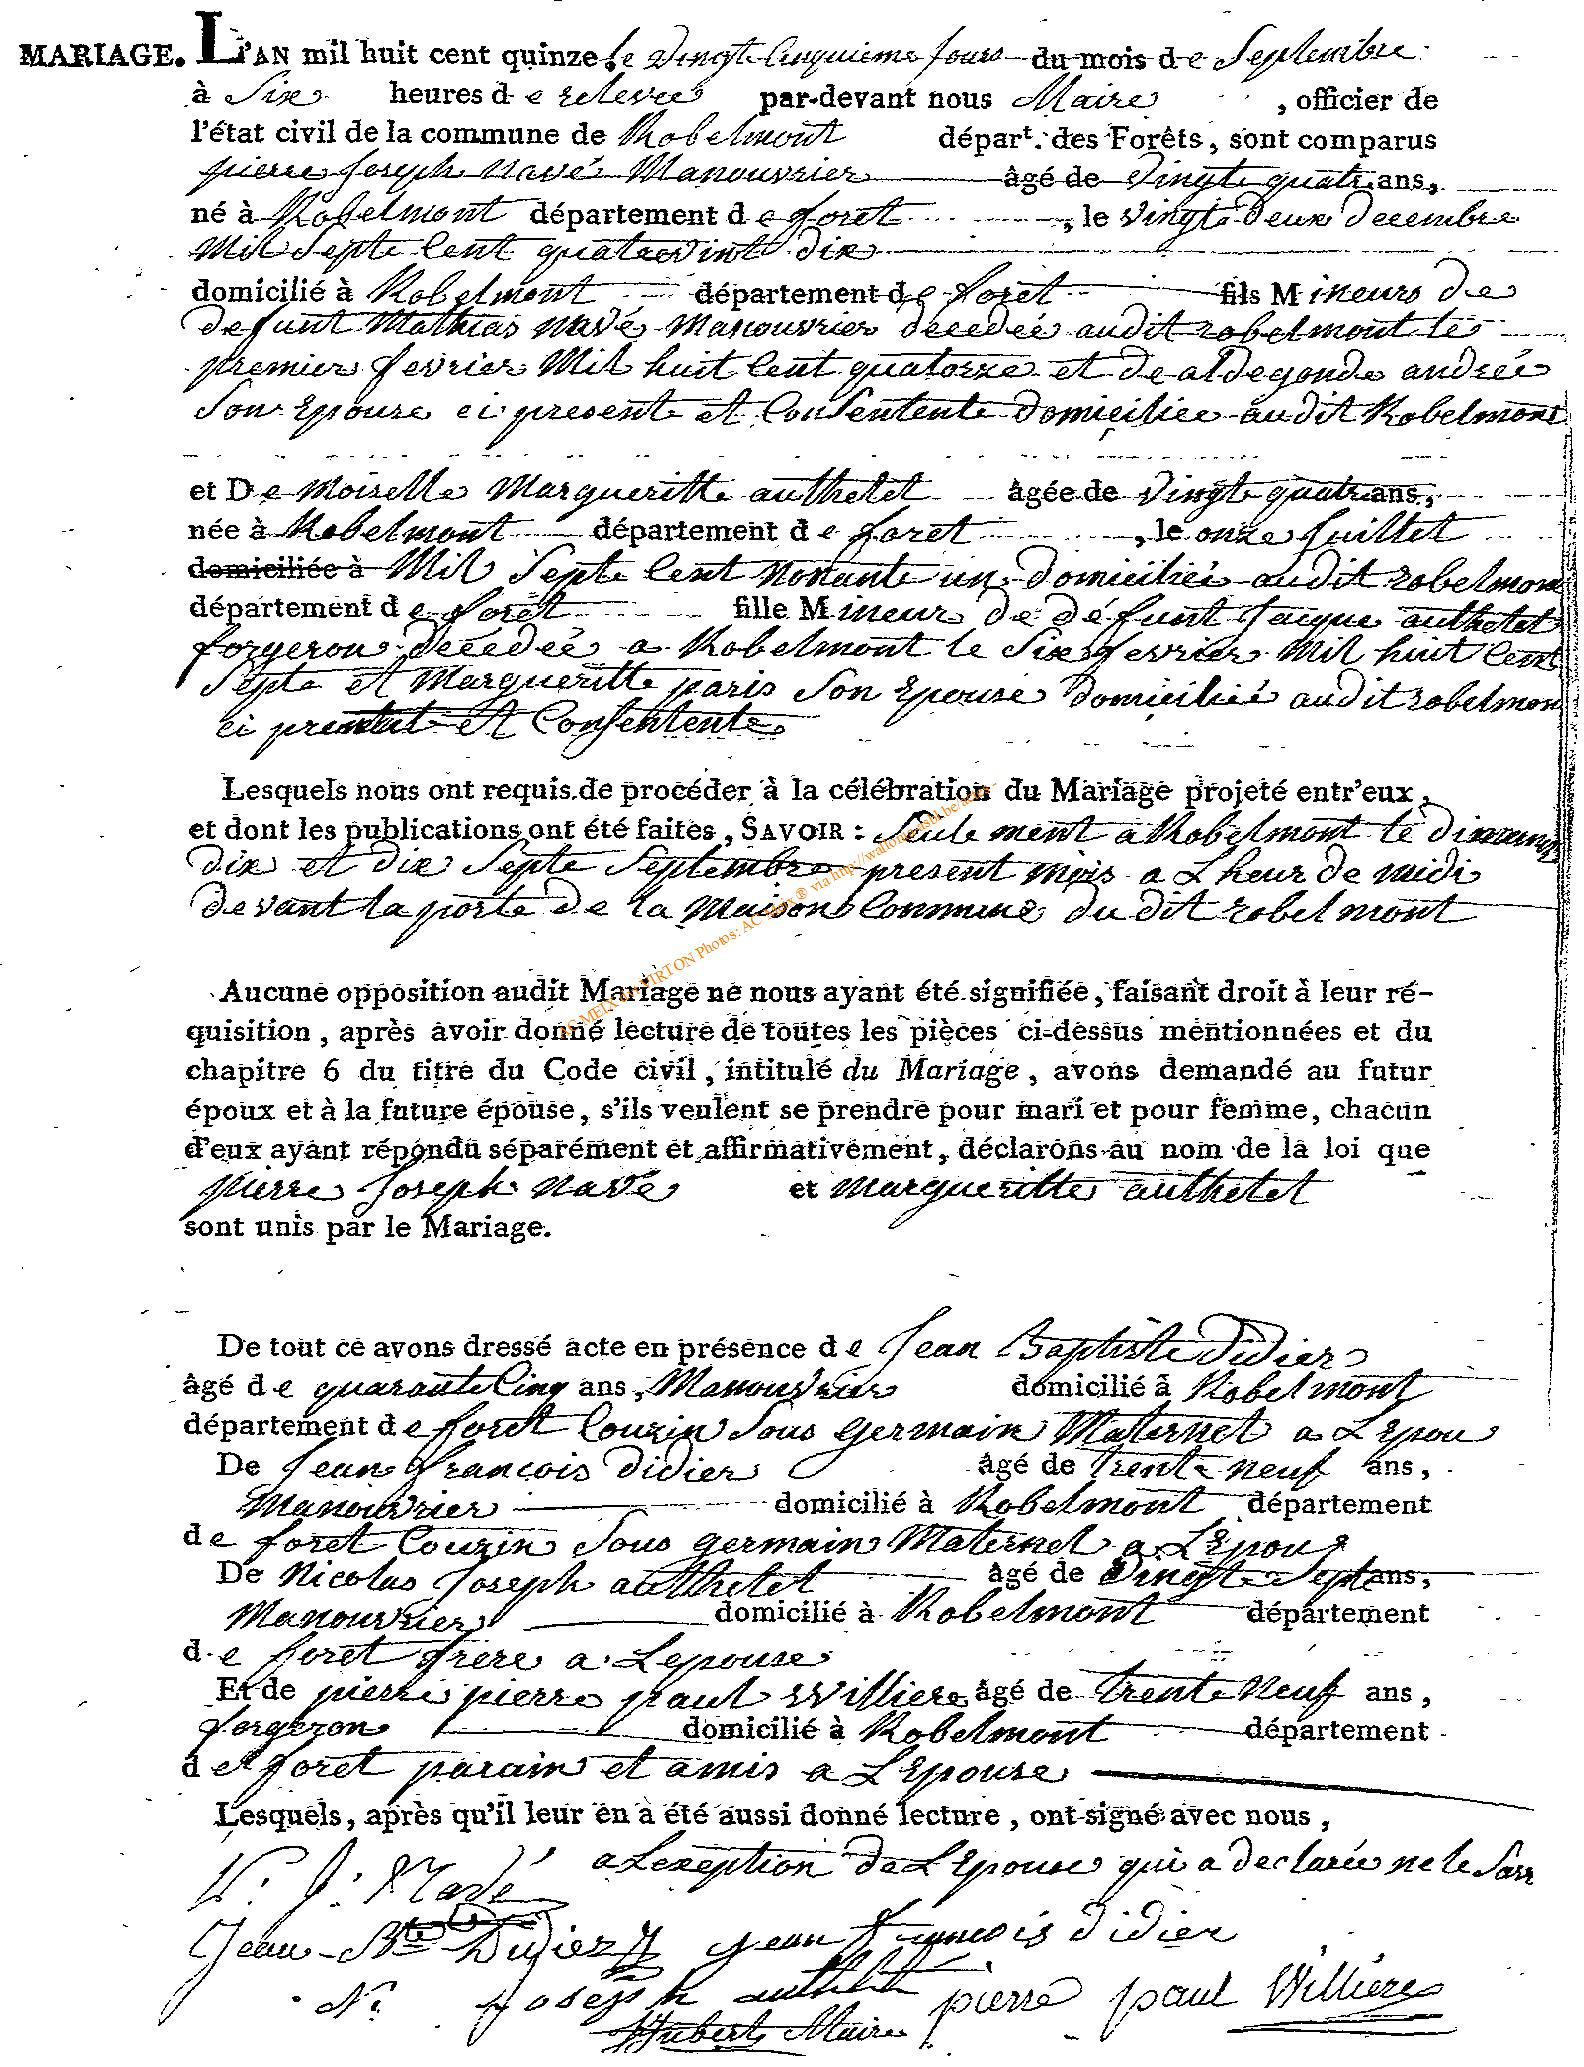 MARIAGE. L'AN mil huit cent quinze, le Vingt Cinquieme Jours du mois de Septembre
à Six heures de relevée par-devant nous Maire , officier de
l'état civil de la commune de Robelmont départ. des Forêts, sont comparus
pierre Joseph Navé Manouvrier âgé de Vingt quatre ans,
né à Robelmont département de foret , le vingte deux decembre
Mil Septe Cent quatrevint dix
domicilié à Robelmont département de foret fils Mineurs de
defunt Mathias Navé Manouvrier decedée audit robelmont le
premier fevrier Mil huit Cent quatorze et de aldegonde andrée
Son Epouse ci presente et Consentente domiciliée audit Robelmont
et DeMoiselle Margueritte authelet âgée de Vingt quatre ans,
née à Robelmont département de foret , le onze Juillet
domiciliée à Mil Septe Cent Nonante un domiciliée audit robelmont
département de foret fille Mineur de défunt Jacque authelet
forgeron decedée a Robelmont le Six fevrier Mil huit Cent
Septe et Margueritte paris Son Epouse domiciliée audit robelmon
ci presentet et Consentente
Lesquels nous ont requis de procéder à la célébration du Mariage projeté entr'eux,
et dont les publications ont été faites, SAVOIR : Seulement a Robelmont le
dix et dix Septe Septembre present mois a L heur de midi
devant la porte de la Maison Commune du dit robelmont
AC MEIX VIRTON Photos: AC via http://wallonia
Aucune opposition audit Mariage ne nous ayant été signifiée, faisant droit à leur ré-
quisition, après avoir donné lecture de toutes les pièces ci-dessus mentionnées et du
chapitre 6 du titre du Code civil, intitulé du Mariage, avons demandé au futur
époux et à la future épouse, s'ils veulent se prendre pour mari et pour femme, chacun
d'eux ayant répondu séparément et affirmativement, déclarons au nom de la loi que
pierre Joseph Navé et Margueritte authelet
sont unis par le Mariage.
De tout ce avons dressé acte en présence de Jean Baptiste didier
âgé de quarante Cinq ans, Manouvrier domicilié à Robelmont
département de foret Couzin Sous germain Maternel a L Epou
De Jean françois didier âgé de trente neuf ans,
Manouvrier domicilié à Robelmont département
de foret Couzin Sous germain Maternel a L'Epou
De Nicolas Joseph authelet âgé de Vingte Septe ans,
Manouvrier domicilié à Robelmont département
de foret frere a Lepouse
Et de pierre pierre paul Williere âgé de trente Neuf ans,
forgeron domicilié à Robelmont département
de foret parain et amis a L'Epouse
Lesquels, après qu'il leur en a été aussi donné lecture, ont signé avec nous,
a Lexeption de L'Epouse qui a declarée ne le
P. J. Navé
Jean Bte Didier jean francois didier
N. joseph authelet pierre paul Williere
Hubert Maire